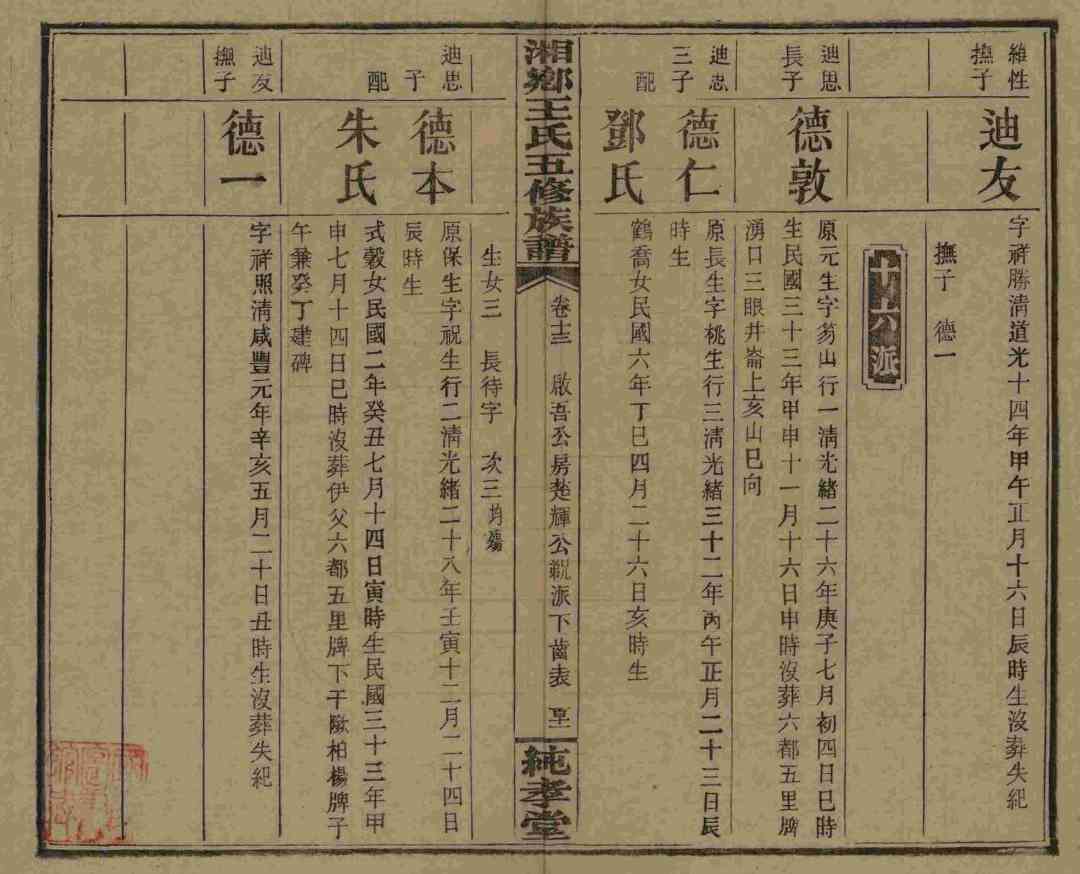 維性
撫子
迪友
字祥勝清道光十四年甲午正月十六日辰時生沒葬失紀
撫子 德一
十六派
迪思
長子
德敦
原元生字芴山行一清光緒二十六年庚子七月初四日巳時
生民國三十三年甲申十一月十六日申時沒葬六都五里牌
湧口三眼井崙上亥山巳向
迪忠
三子
德仁
原長生字桃生行三清光緒三十二年丙午正月二十三日辰
時生
配
鄧氏
鶴喬女民國六年丁巳四月二十六日亥時生
湘鄉王氏五修族譜
卷十三 啟吾公房楚輝公派下齒表
純孝堂
生女三 長待字 次三均殤
迪思
子
德本
原保生字祝生行二清光緒二十八年壬寅十二月二十四日
辰時生
配
朱氏
式穀女民國二年癸丑七月十四日寅時生民國三十三年甲
申七月十四日巳時沒葬伊父六都五里牌下干歐柏楊牌子
午兼癸丁建碑
迪友
撫子
德一
字祥照清咸豐元年辛亥五月二十日丑時生沒葬失紀